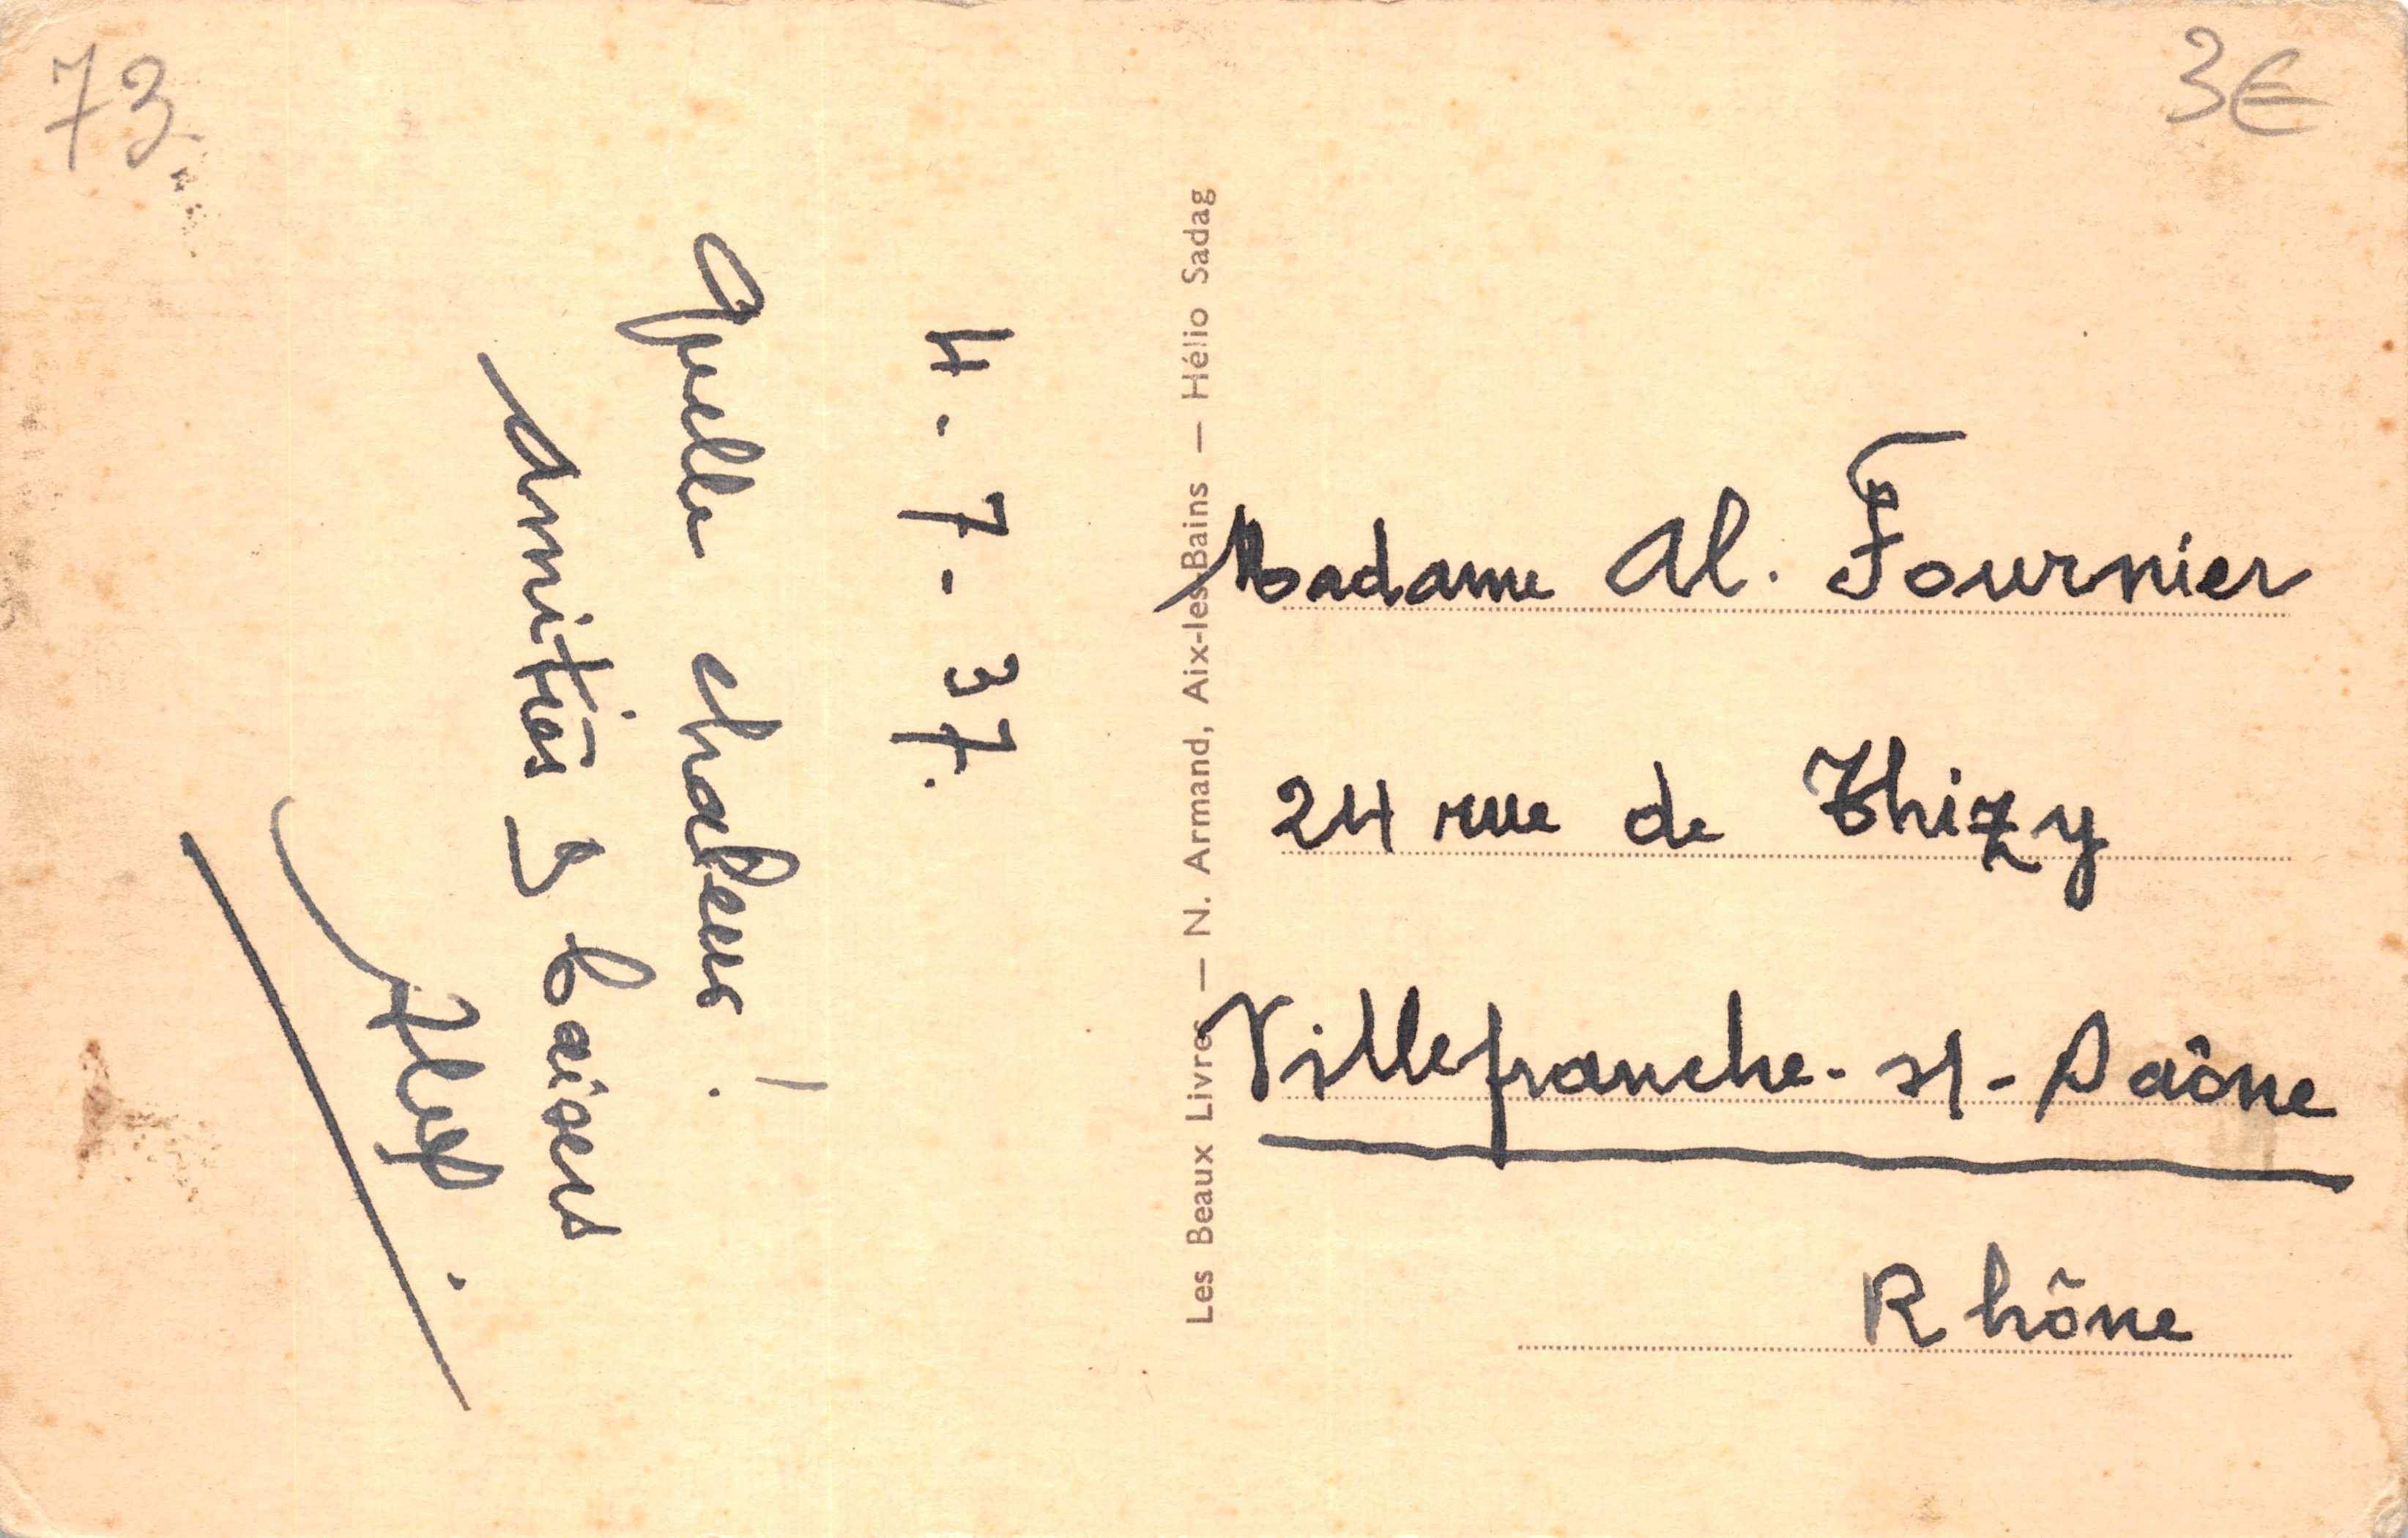 73
3€
4.7.37.
Quelle chaleur !
Amitiés & baisers
Les Beaux Livres — N. Armand, Aix-les-Bains — Hélio Sadag
Madame Al. Fournier
24 rue de Thizy
Villefranche-s/-Saône
Rhône